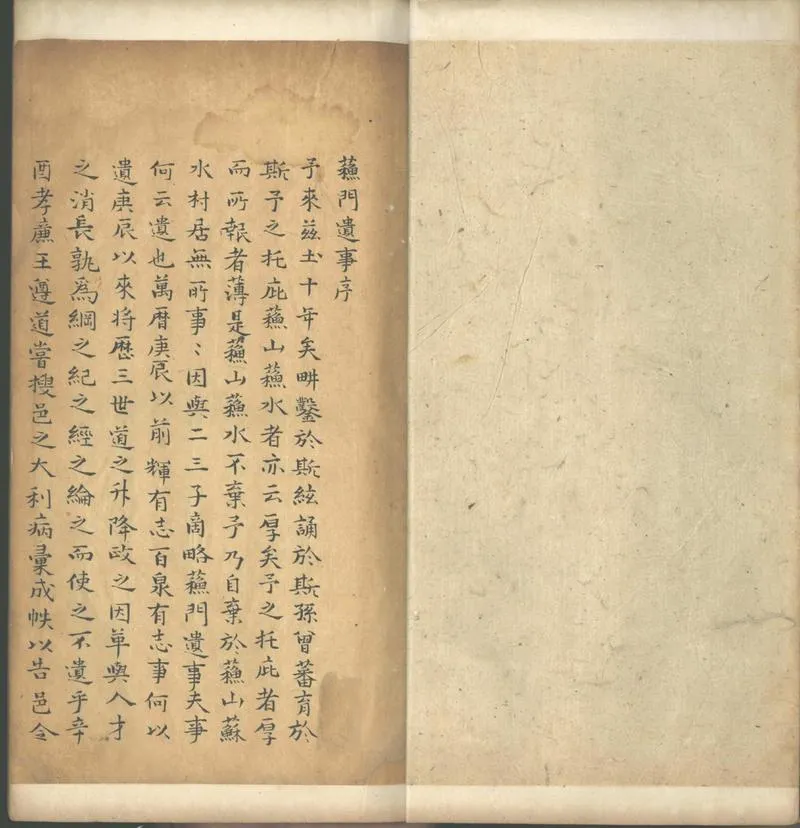 蘓門遺事序
予來茲土十年矣畊鑿於斯絃誦於斯孫曾蕃育於
斯予之托庇蘓山蘓水者亦云厚矣予之托庇者厚
而所報者薄是蘓山蘓水不棄予乃自棄於蘓山蘇
水村居無所事〻因與二三子商略蘓門遺事夫事
何云遺也萬曆庚辰以前輝有志百泉有志事何以
遺庚辰以來将歷三世道之升降政之因革與人才
之消長孰為綱之紀之經之綸之而使之不遺乎辛
酉孝廉王遵道嘗搜邑之大利病彙成帙以告邑令